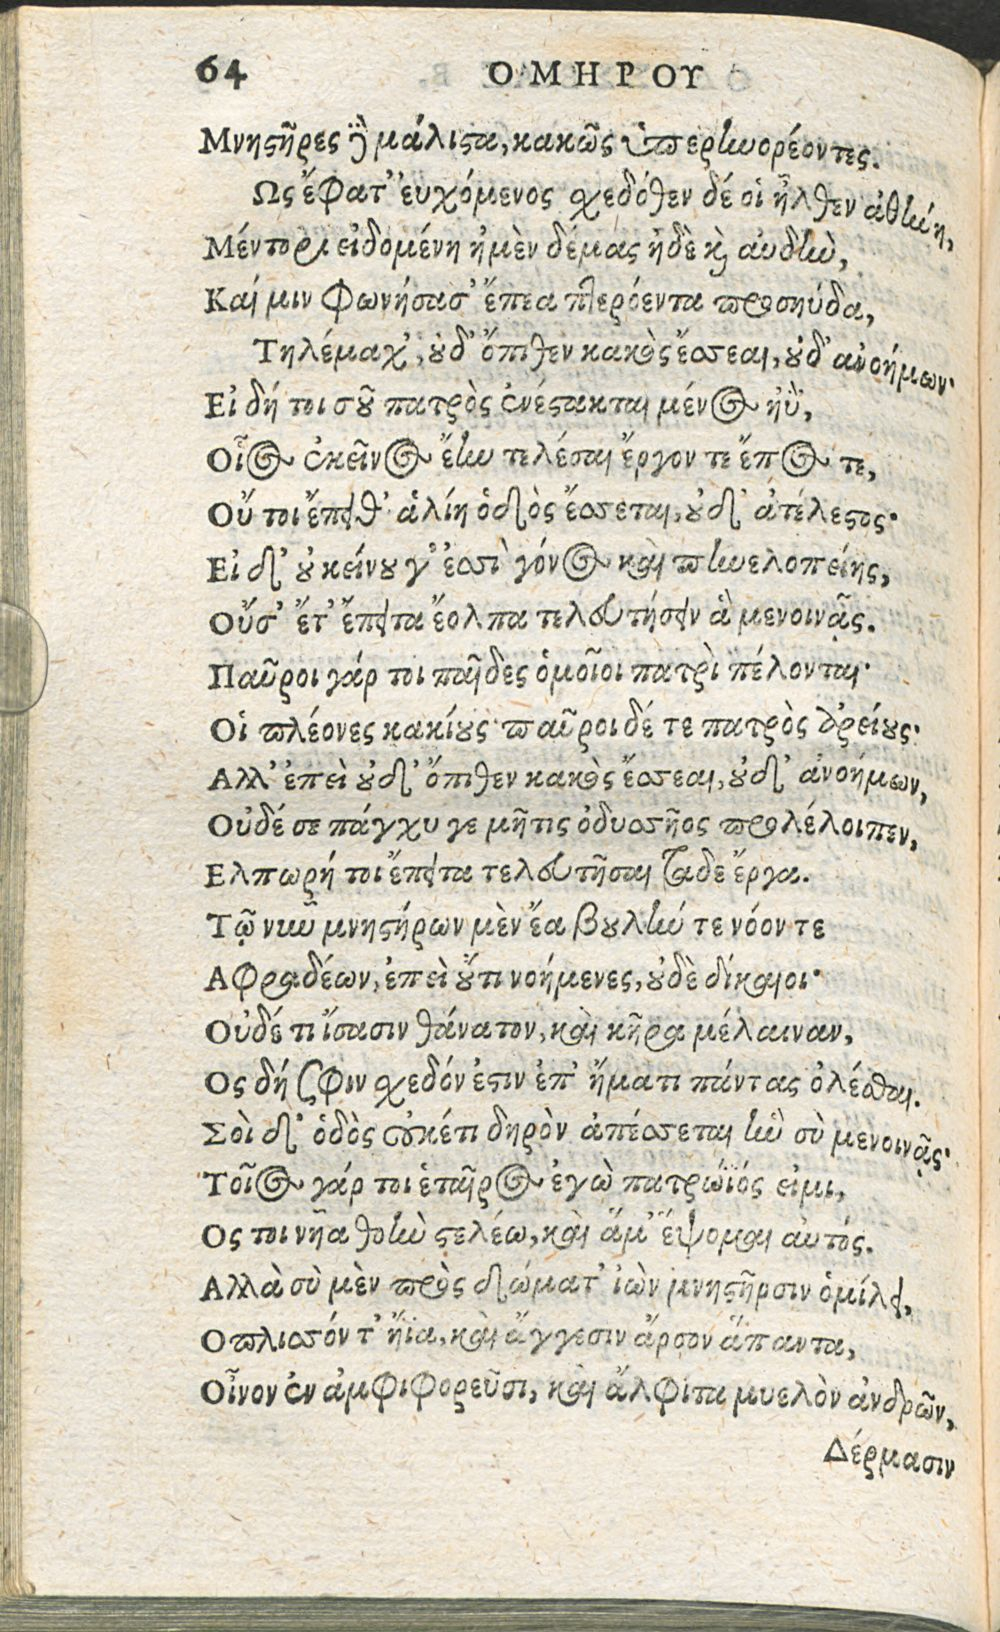 64 ΟΜΗΡΟΥ
Μνηστῆρες δὲ μάλιστα, κακῶς ὑπερηνορέοντες.
Ως ἔφατ' ἐυχόμενος σχεδόθεν δέ οἱ ἦλθεν ἀθήνη,
Μέντορι εἰδομένη ἠμὲν δέμας ἠδὲ καὶ αυδὴν,
Καί μιν φωνήσασ' ἔπεα πτερόεντα προσηύδα,
Τηλέμαχ', οὐδ' ὄπιθεν κακὸς ἔσσεαι, οὐδ' ανοήμων·
Εἰ δή τοι σοῦ πατρὸς ἐνέστακται μένος ἠΰ,
Οἷος ἐκεῖνος ἔην τελέσαι ἔργον τε ἔπος τε,
Οὔ τοι ἔπειθ' ἁλίη ὁδὸς ἔσσεται, οὐδ' ἀτέλεστος·
Εἰ δ' οὐ κείνου γ' ἐσσὶ γόνος καὶ πηνελοπείης,
Οὔσ' ἔτ' ἔπειτα ἔολπα τελευτήσειν ἃ μενοινᾷς.
Παῦροι γάρ τοι παῖδες ὁμοῖοι πατρὶ πέλονται·
Οἱ πλέονες κακίους· παῦροι δέ τε πατρὸς ἀρείους·
Αλλ' ἐπεὶ οὐδ' ὄπιθεν κακὸς ἔσσεαι, οὐδ' ἀνοήμων,
Οὐδέ σε πάγχυ γε μῆτις ὀδυσσῆος προλέλοιπεν,
Ελπωρή τοι ἔπειτα τελευτῆσαι ταδε ἔργα.
Τῷ νῦν μνηστήρων μὲν ἔα βουλήν τε νόον τε
Αφραδέων, ἐπεὶ οὔτι νοήμενες, οὐδὲ δίκαιοι·
Οὐδέ τι ἴσασιν θάνατον, καὶ κῆρα μέλαιναν,
Ος δή σφιν σχεδόν ἐστιν ἐπ' ἤματι πάντας ὀλέσθαι.
Σοὶ δ' ὁδὸς οὐκέτι δηρὸν ἀπέσσεται ἣν σὺ μενοινᾷς·
Τοῖος γάρ τοι ἑταῖρος ἐγὼ πατρώϊός εἰμι,
Ος τοι νῆα θοὴν στελέω, καὶ ἅμ' ἕψομαι αὐτός.
Αλλὰ σὺ μὲν πρὸς δώματ' ἰὼν μνηστῆρσιν ὁμίλει,
Οπλισσόν τ' ἤϊα, καὶ ἄγγεσιν ἄρσον ἅπαντα,
Οἶνον ἐν ἀμφιφορεῦσι, καὶ ἄλφιτα μυελὸν ἀνδρῶν,
Δέρμασιν